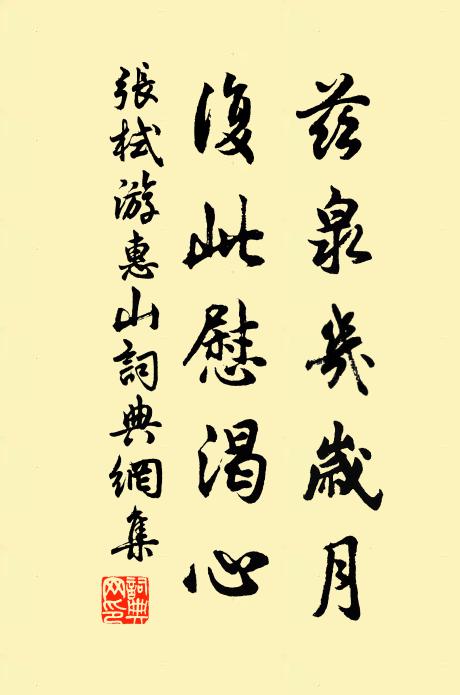 茲泉幾歲月
復此慰渴心
張栻游惠山詞典網集
詞典網印